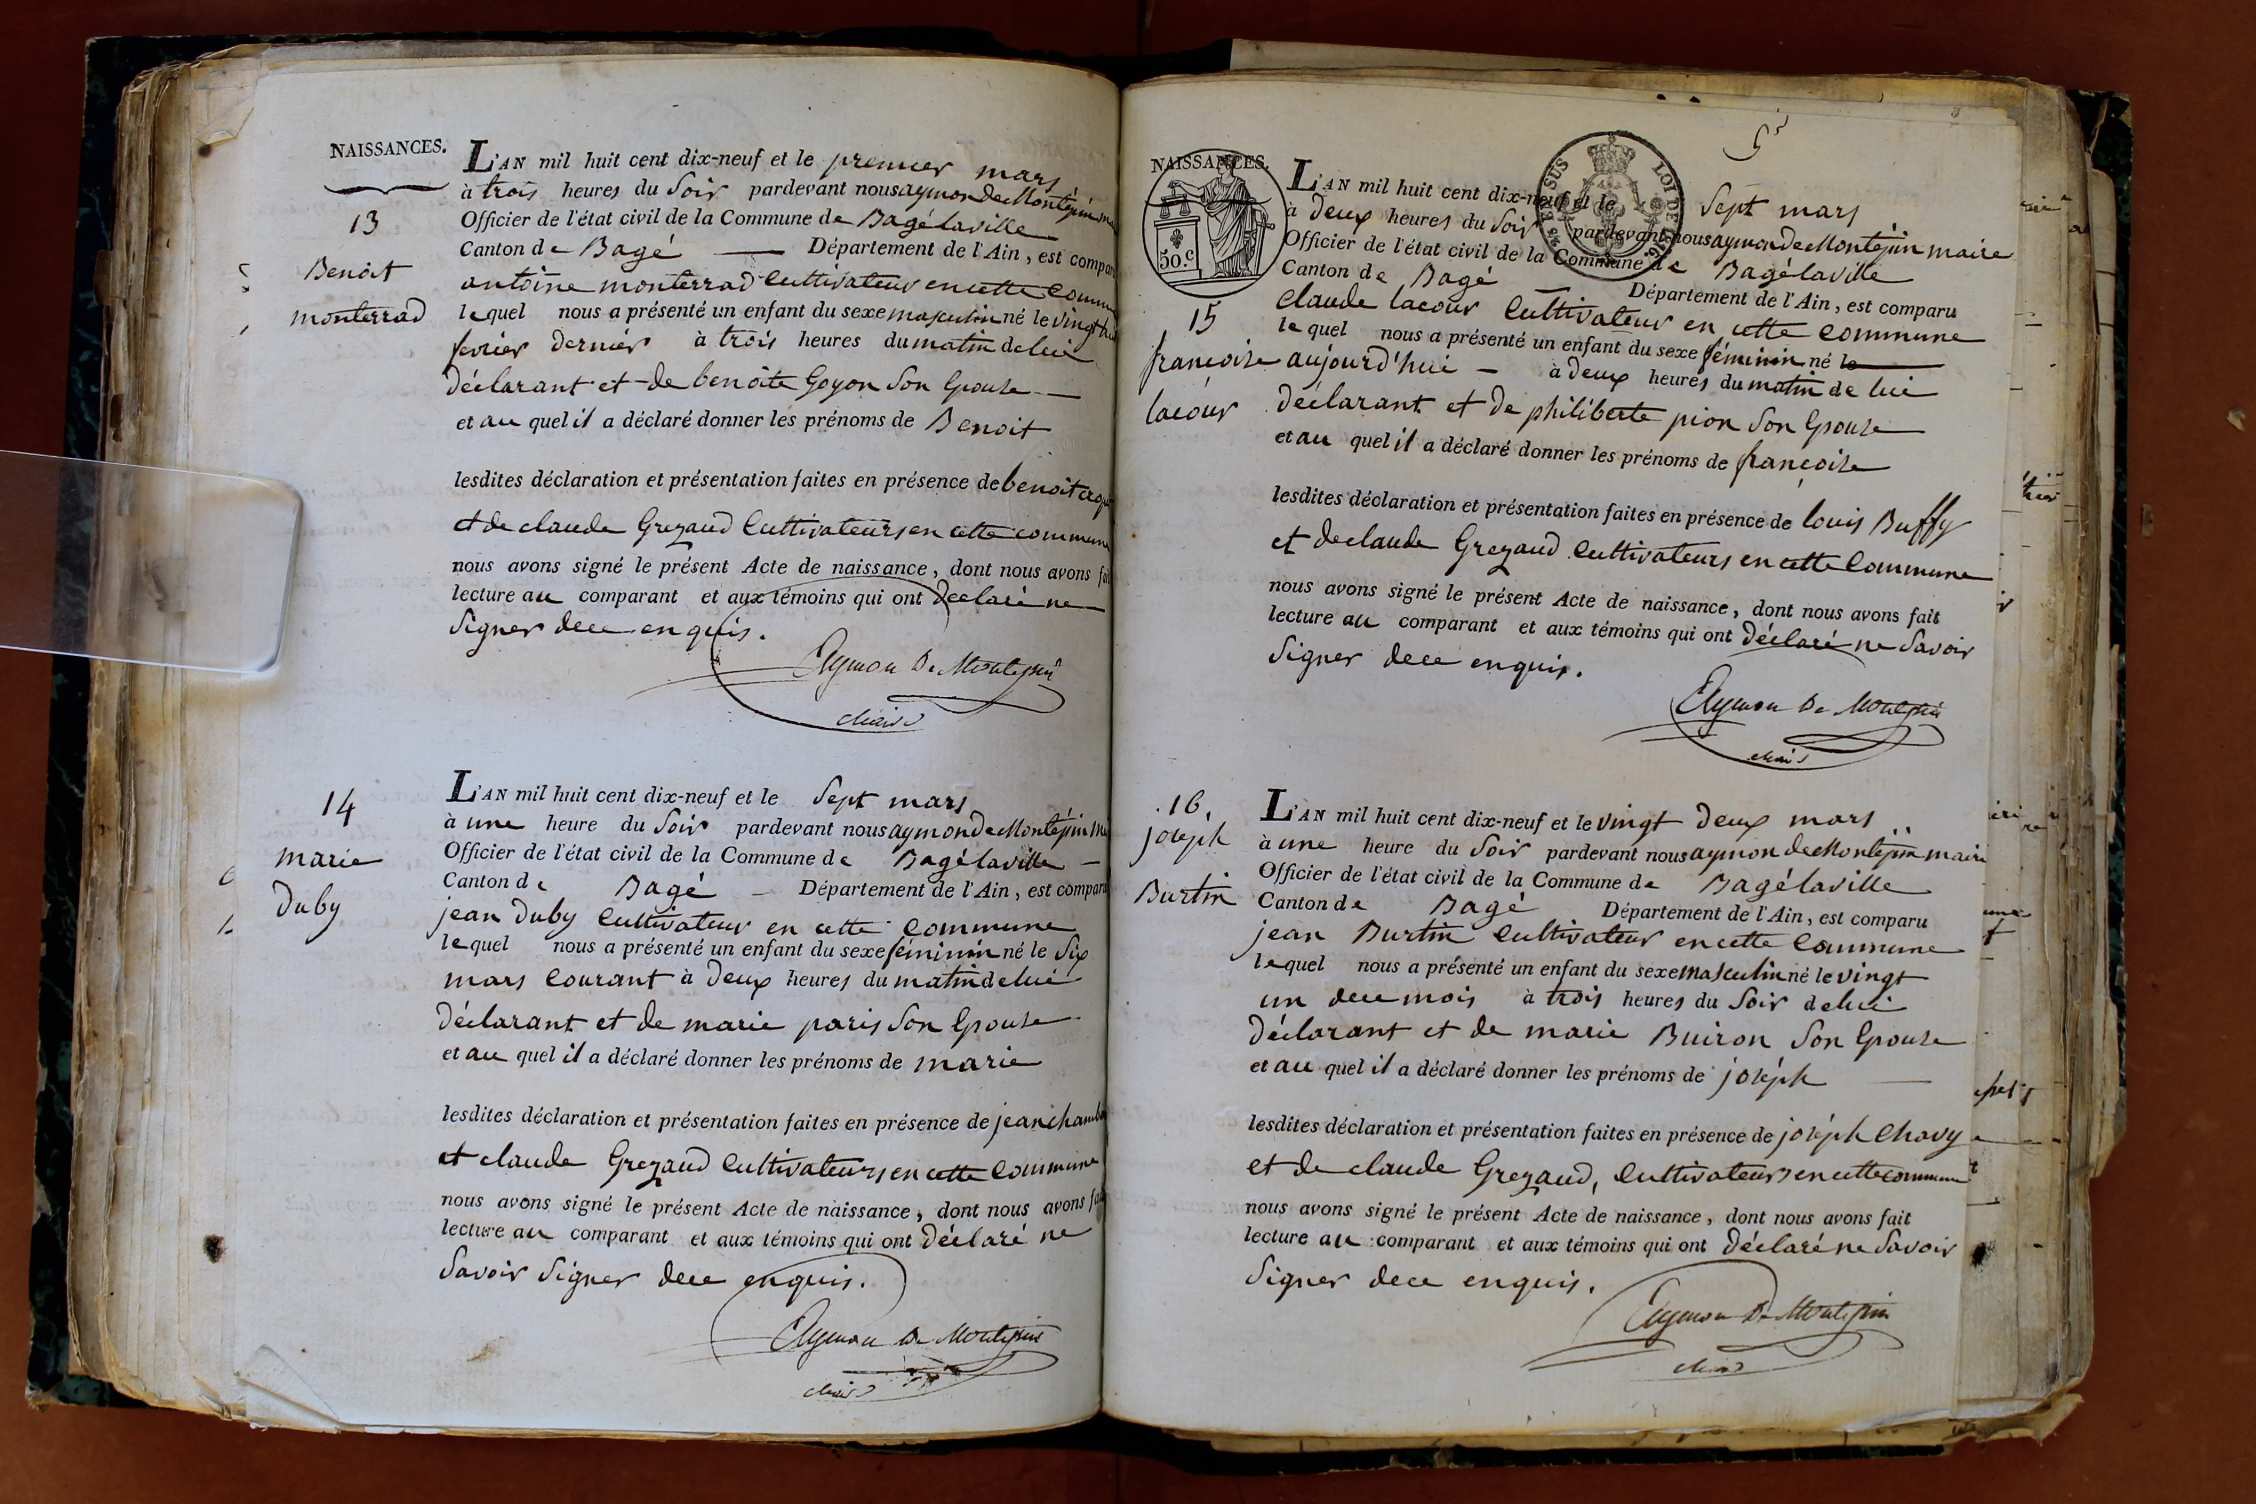 NAISSANCES.
13
Benoit
monterrad
L'AN mil huit cent dix-neuf et le premier mars
à trois heures du Soir pardevant nous aymon de Montépin
Officier de l'état civil de la Commune de Bagé laville
Canton de Bagé — Département de l'Ain, est compar
antoine monterrad Cultivateur en cette Commu
lequel nous a présenté un enfant du sexe masculin né le vingt
fevrier dernier à trois heures du matin de lui
déclarant et de benoite Goyon Son Epouse —
et au quel il a déclaré donner les prénoms de Benoit
lesdites déclaration et présentation faites en présence de benoit
et de claude Grezaud Cultivateurs en cette commune
nous avons signé le présent Acte de naissance, dont nous avons fai
lecture au comparant et aux témoins qui ont declaré ne
Signer de ce enquis.
Aymon De Montepin
Maire
14
marie
Duby
L'AN mil huit cent dix-neuf et le Sept mars
à une heure du Soir pardevant nous aymon de Montépin
Officier de l'état civil de la Commune de Bagé laville —
Canton de Bagé — Département de l'Ain, est compar
jean Duby Cultivateur en cette Commune
lequel nous a présenté un enfant du sexe féminin né le Six
mars Courant à Deux heures du matin de lui
déclarant et de marie paris Son Epouse
et au quel il a déclaré donner les prénoms de marie
lesdites déclaration et présentation faites en présence de jean
et claude Grezaud Cultivateurs en cette Commune
nous avons signé le présent Acte de naissance, dont nous avons fai
lecture au comparant et aux témoins qui ont déclaré ne
Savoir Signer de ce enquis.
Aymon De Montepin
Maire
NAISSANCES.
50.c
LOI DE
15
françoise
lacour
L'AN mil huit cent dix-neuf et le Sept mars
à Deux heures du Soir pardevant nous aymon de Montépin maire
Officier de l'état civil de la Commune de Bagé laville
Canton de Bagé — Département de l'Ain, est comparu
Claude lacour Cultivateur en cette Commune
lequel nous a présenté un enfant du sexe féminin né le
aujourd'hui — à Deux heures du matin de lui
déclarant et de philiberte pion Son Epouse
et au quel il a déclaré donner les prénoms de françoise
lesdites déclaration et présentation faites en présence de louis Buffy
et de claude Grezaud Cultivateurs en cette Commune
nous avons signé le présent Acte de naissance, dont nous avons fait
lecture au comparant et aux témoins qui ont déclaré ne Savoir
Signer de ce enquis.
Aymon De Montepin
Maire
16.
joséph
Burtin
L'AN mil huit cent dix-neuf et le vingt Deux mars
à une heure du Soir pardevant nous aymon de Montépin maire
Officier de l'état civil de la Commune de Bagé laville
Canton de Bagé Département de l'Ain, est comparu
jean Burtin Cultivateur en cette Commune
lequel nous a présenté un enfant du sexe masculin né le vingt
un de ce mois à trois heures du Soir de lui
déclarant et de marie Buiron Son Epouse
et au quel il a déclaré donner les prénoms de joséph —
lesdites déclaration et présentation faites en présence de joséph Chavy
et de claude Grezaud, Cultivateurs en cette commune
nous avons signé le présent Acte de naissance, dont nous avons fait
lecture au comparant et aux témoins qui ont déclaré ne Savoir
Signer de ce enquis.
Aymon De Montepin
Maire